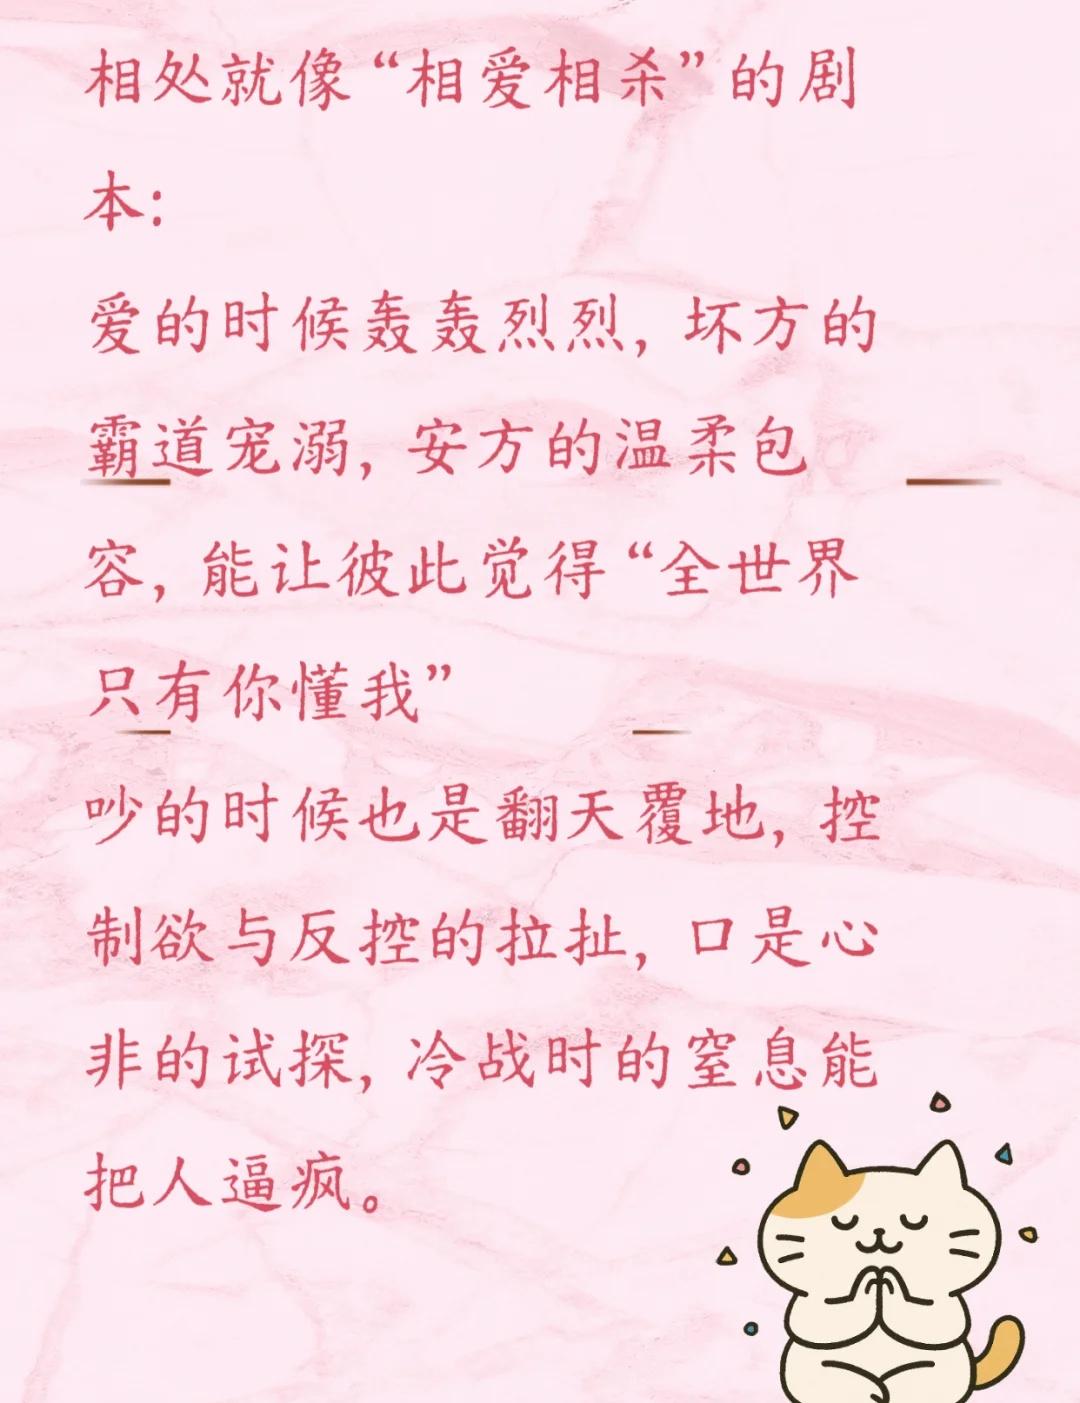 相处就像“相爱相杀”的剧
本：
爱的时候轰轰烈烈，坏方的
霸道宠溺，安方的温柔包
容，能让彼此觉得“全世界
只有你懂我”
吵的时候也是翻天覆地，控
制欲与反控的拉扯，口是心
非的试探，冷战时的窒息能
把人逼疯。